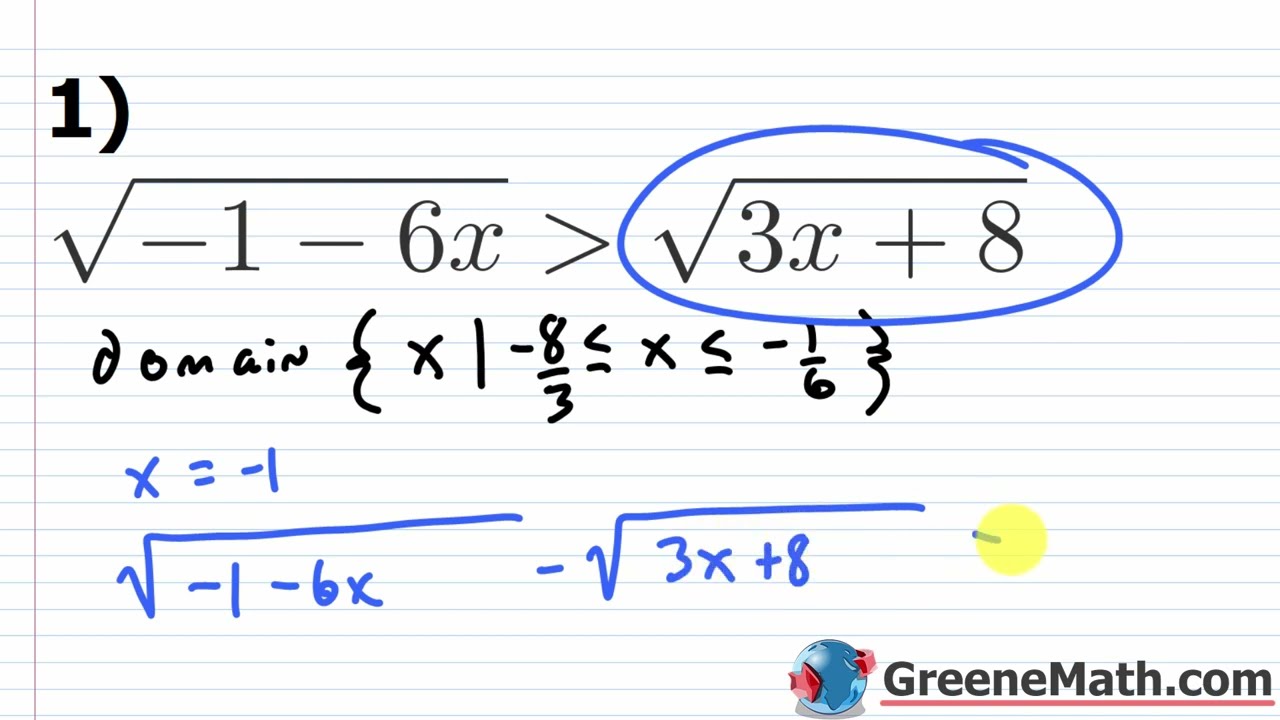 1)
√(-1 - 6x) > √(3x + 8)
domain { x | -8/3 ≤ x ≤ -1/6 }
x = -1
√(-1 - 6x) - √(3x + 8) -
GreeneMath.com